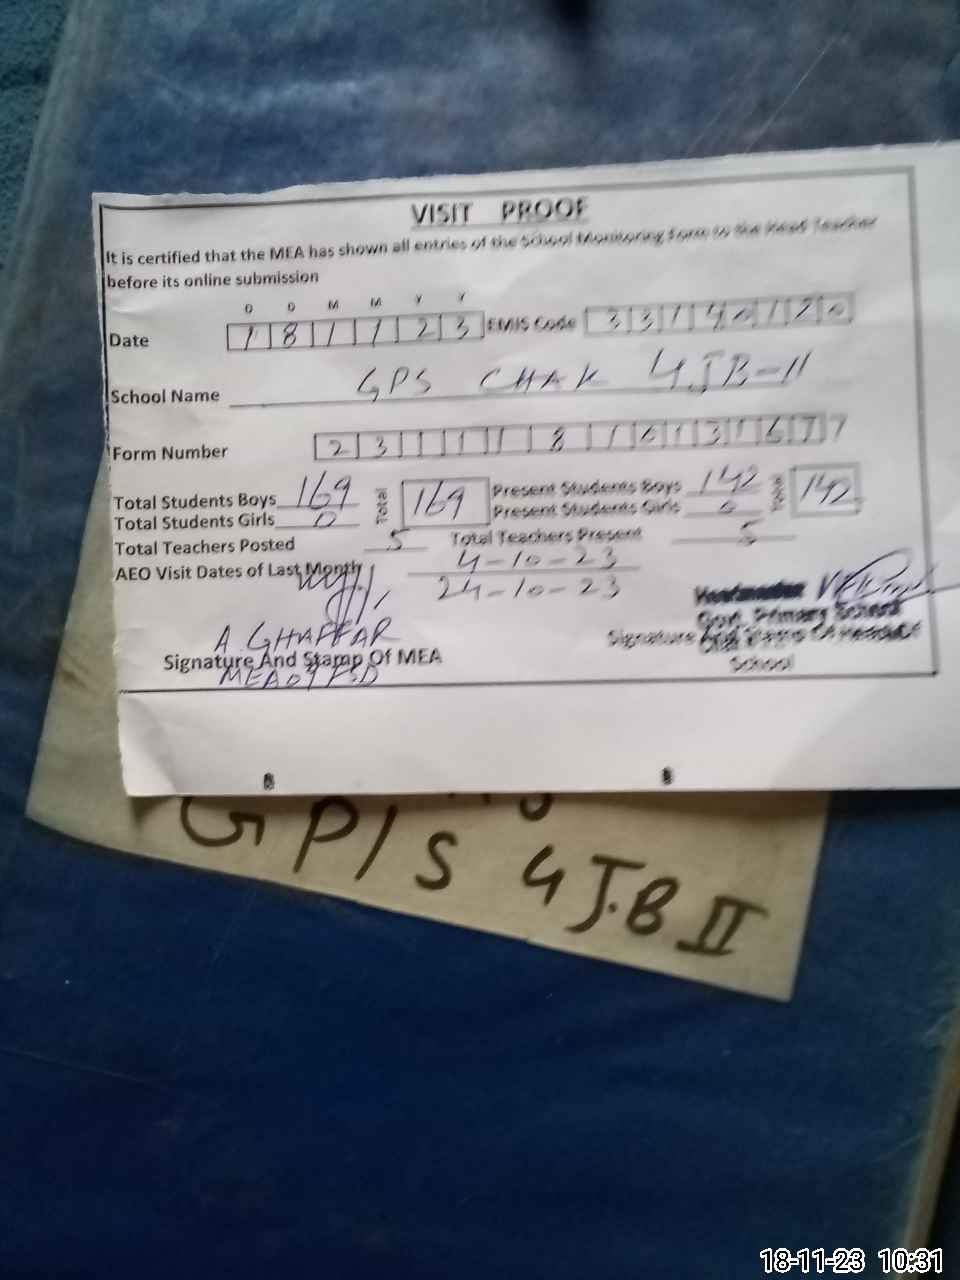 VISIT PROOF
It is certified that the MEA has shown all entries of the School Monitoring Form to the Head Teacher
before its online submission
D D M M Y Y
Date 1 8 1 1 2 3 EMIS Code 3 3 1 4 0 1 2 0
School Name GPS CHAK 4JB-II
Form Number 2 3 1 1 1 8 1 0 1 3 1 6 7 7
Total Students Boys 169 Total 169 Present Students Boys 142 Total 142
Total Students Girls 0 Present Students Girls 0
Total Teachers Posted 5 Total Teachers Present 5
AEO Visit Dates of Last Month 4-10-23
24-10-23
Headmaster
Govt. Primary School
A. GHAFFAR
Signature And Stamp Of MEA
Signature And Stamp Of Head Of
School
MEA 09 FSD
GP/S 4 J.B II
18-11-23 10:31